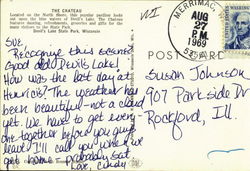 THE CHATEAU
Located on the North Shore, this popular pavilion looks
out upon the blue waters of Devil's Lake. The Chateau
features dancing, refreshments, groceries and gifts for
the many visitors to the State Park.
Devil's Lake State Park, Wisconsin
WI
MERRIMAC,
AUG
27
P.M.
1969
POST CARD
Sue,
Recognize this scene?
Good old Devils Lake!
How was the last day at
Henrici's? The weather has
been beautiful - not a cloud
yet. We have to get every-
one together before you guys
leave! I'll call you when we
get home - probably Sat.
Love, Cindy
Susan Johnson
907 Parkside Dr
Rockford, Ill.